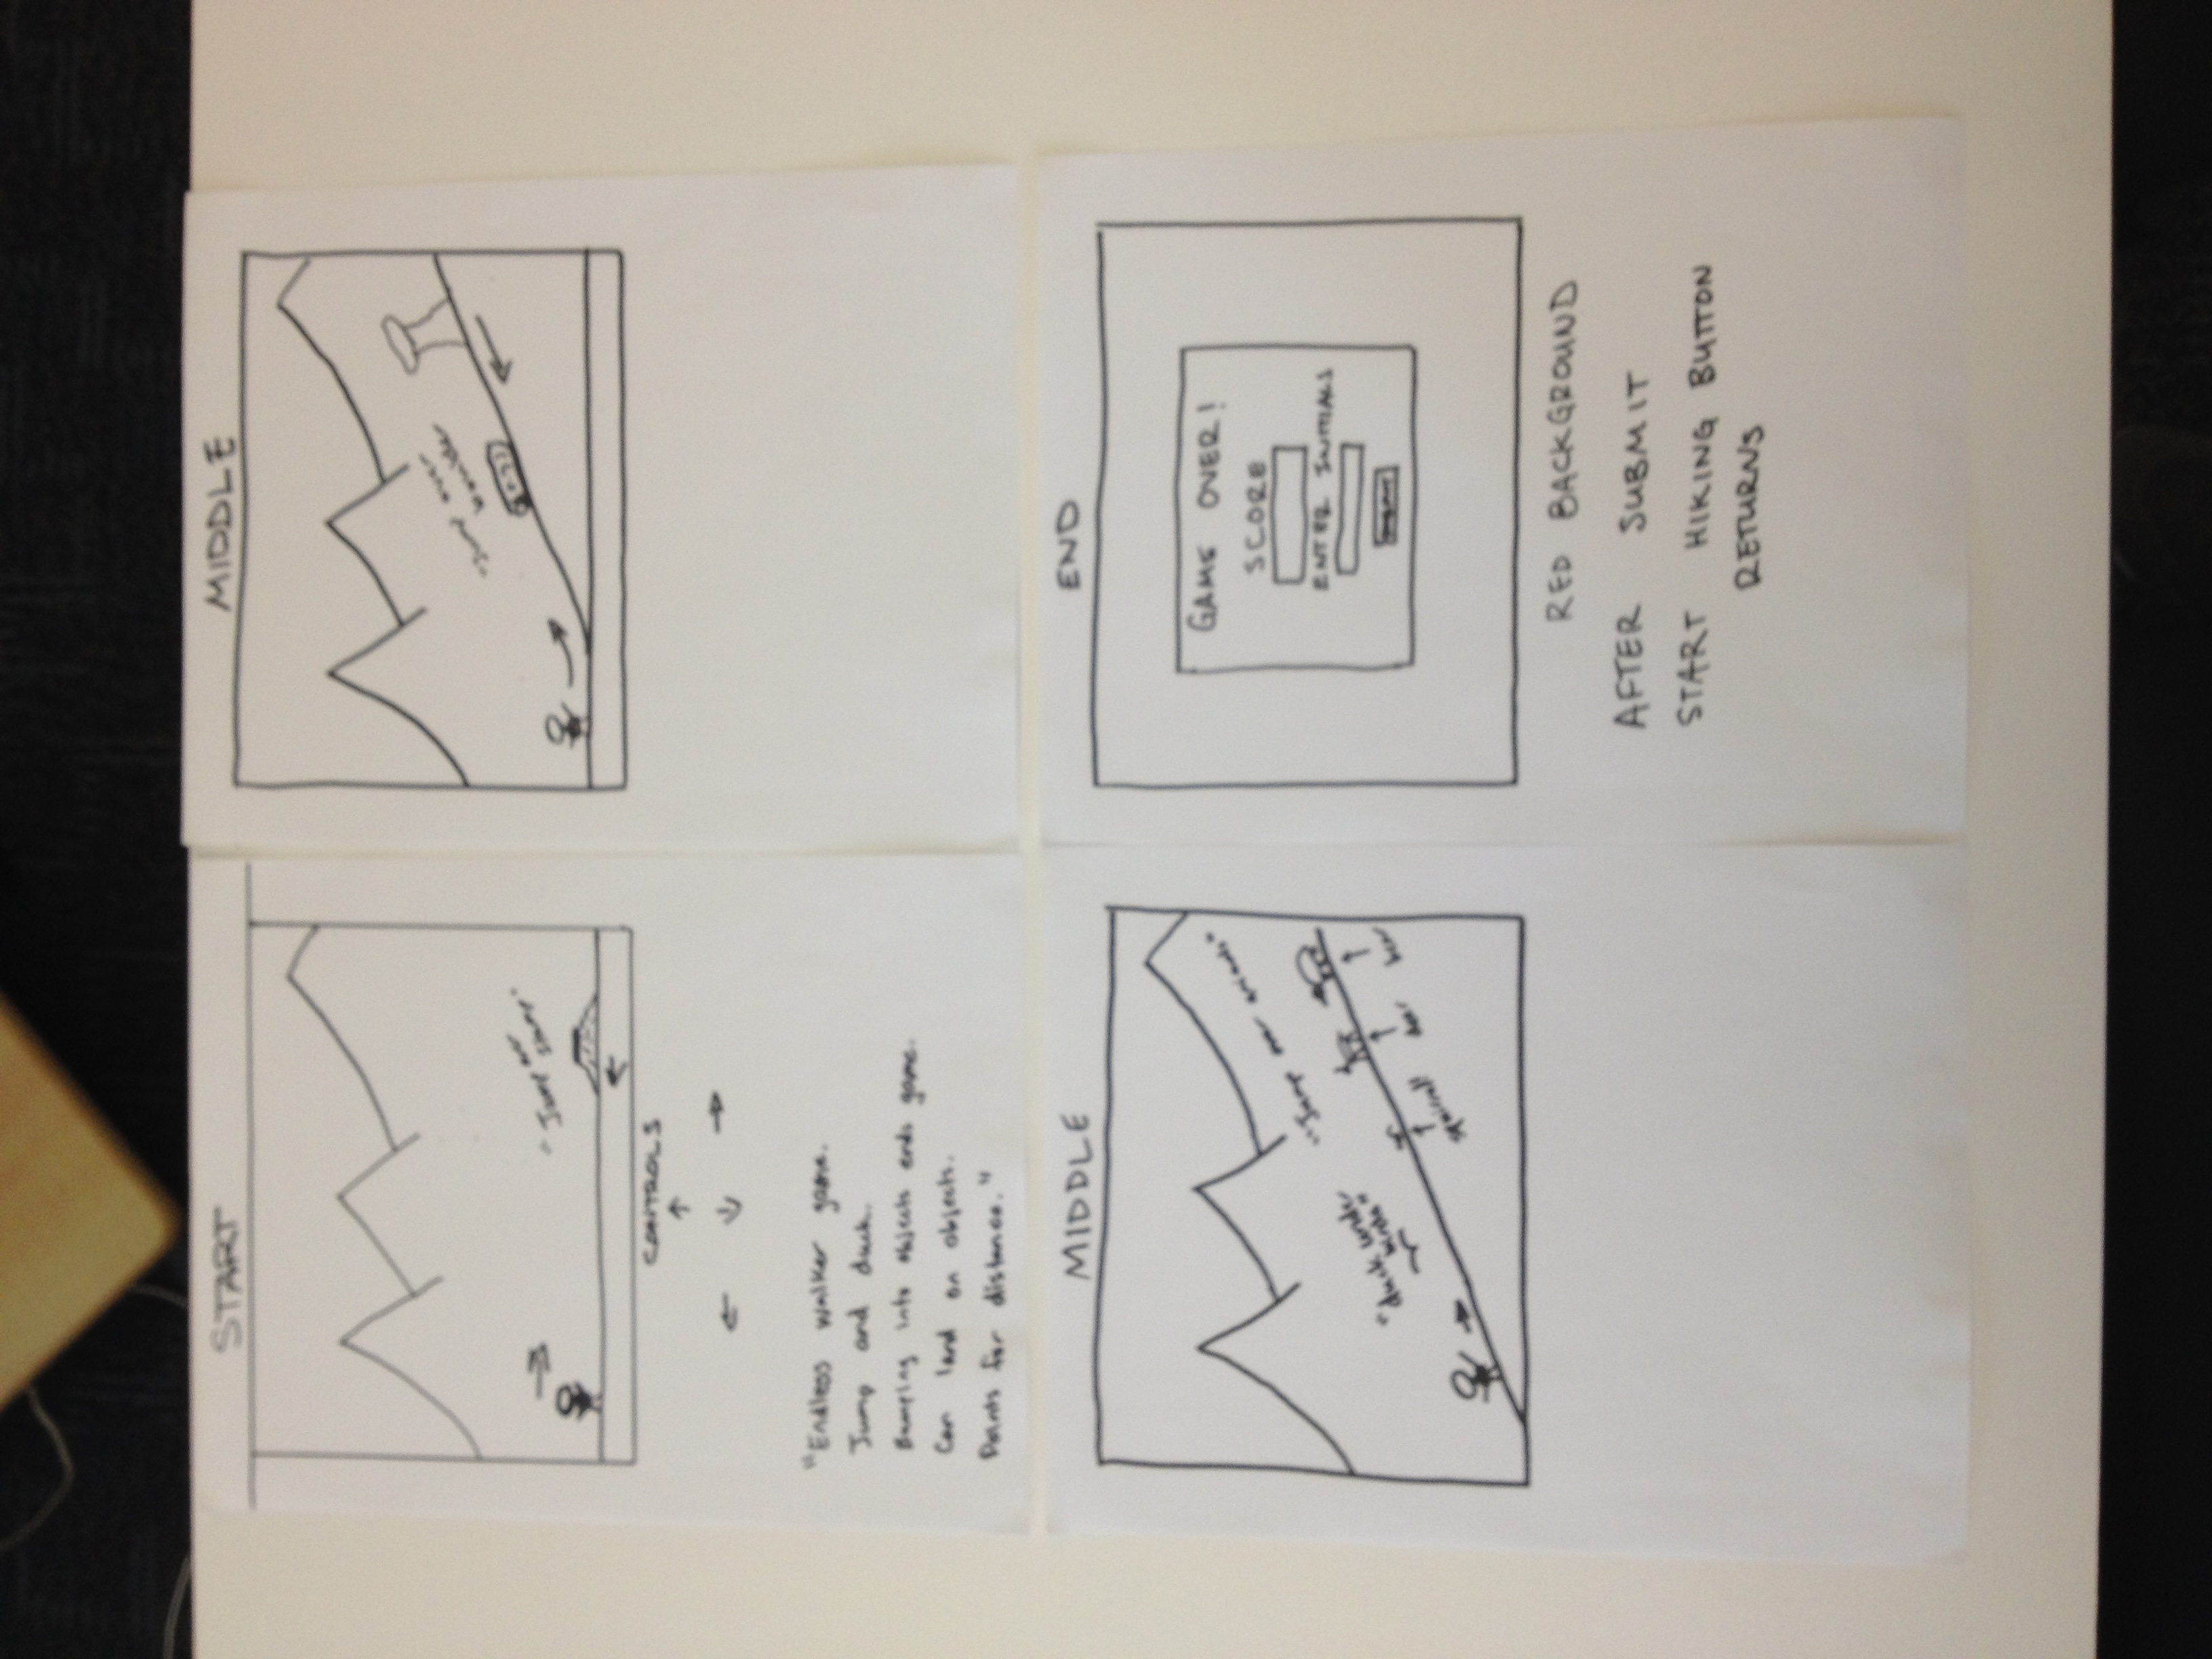 START
"Jump over
stump"
CONTROLS
"Endless walker game.
Jump and duck.
Bumping into objects ends game.
Can land on objects.
Points for distance."
MIDDLE
"Jump over
boulder
MIDDLE
"Jump over animals"
"duck under
birds"
squirrel
dear
bear
END
GAME OVER!
SCORE
ENTER INITIALS
SUBMIT
RED BACKGROUND
AFTER SUBMIT
START HIKING BUTTON
RETURNS